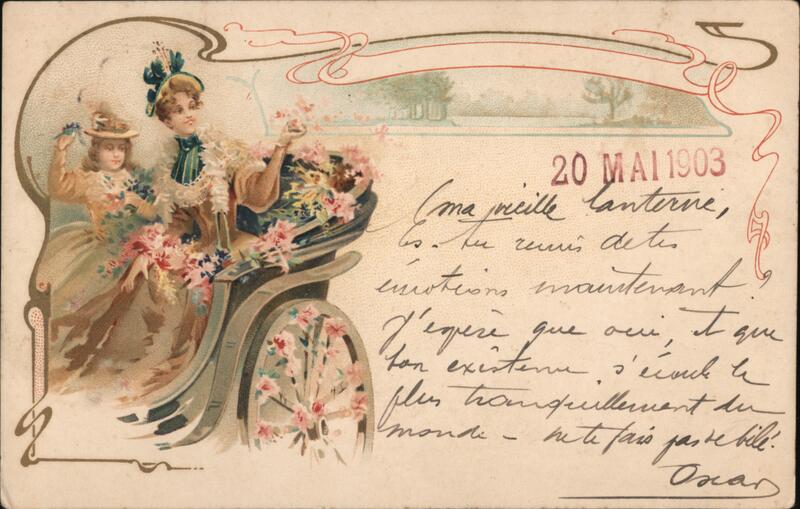 20 MAI 1903
Ma vieille lanterne,
Es-tu remis de tes
émotions maintenant ?
J'espère que oui, et que
ton existence s'écoule le
plus tranquillement du
monde – ne te fais pas de bile.
Oscar